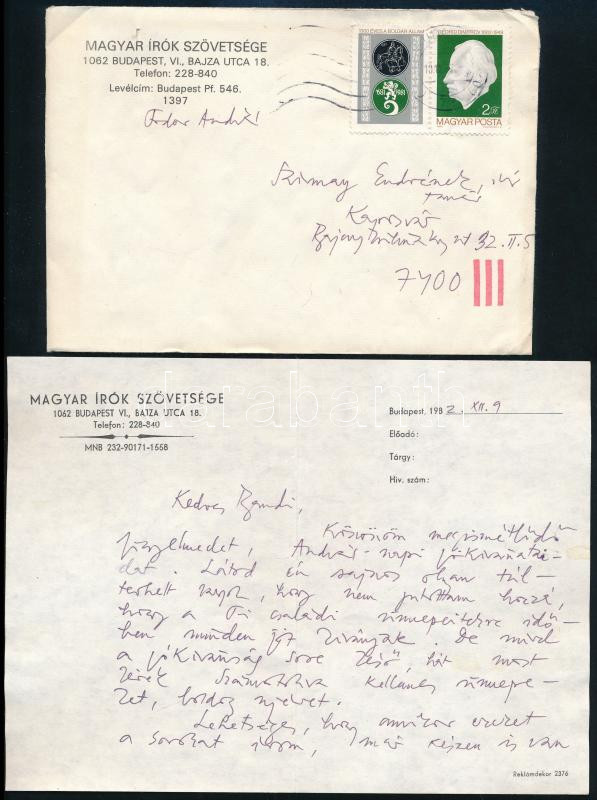 MAGYAR ÍRÓK SZÖVETSÉGE
1062 BUDAPEST, VI., BAJZA UTCA 18.
Telefon: 228-840
Levélcím: Budapest Pf. 546.
1397
Fodor András
1300 ÉVES A BOLGÁR ÁLLAM
681 1981
GEORGI DIMITROV 1882-1949
2 Ft
MAGYAR POSTA
Szirmay Endrének,
tanár
Kaposvár
32. II. 5
7400
MAGYAR ÍRÓK SZÖVETSÉGE
1062 BUDAPEST VI., BAJZA UTCA 18.
Telefon: 228-840
MNB 232-90171-1558
Budapest, 198 2. XII. 9
Előadó:
Tárgy:
Hiv. szám:
Kedves Bandi,
Köszönöm megismétlődő
figyelmedet, András-napi jókívánatai-
dat. Látod én sajnos olyan túl-
terhelt vagyok, hogy nem jutottam hozzá,
hogy a Ti családi ünnepeitekre idő-
ben minden jót kívánjak. De mivel
a jókívánság sose késő, hát most
kellemes ünnepe-
ket, boldog újévet.
Lehetséges, hogy amikor ezeket
a sorokat írom, már készen is van
Reklámdekor 2376